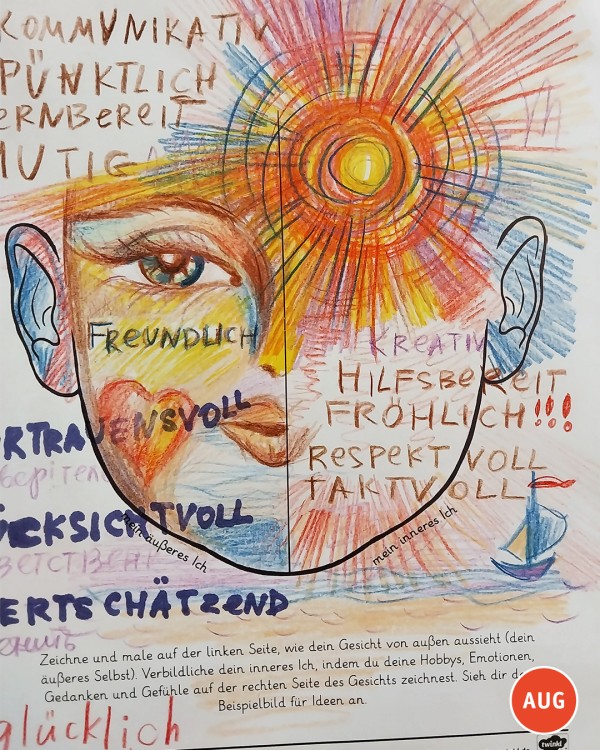 KOMMUNIKATIV
PÜNKTLICH
ERNBEREIT
MUTIG
FREUNDLICH
KREATIV
HILFSBEREIT
FRÖHLICH!!!
RTRAUENSVOLL
RESPEKTVOLL
TAKTVOLL
ÜCKSICHTVOLL
mein äußeres Ich
mein inneres Ich
ERTSCHÄTZEND
Zeichne und male auf der linken Seite, wie dein Gesicht von außen aussieht (dein
äußeres Selbst). Verbildliche dein inneres Ich, indem du deine Hobbys, Emotionen,
Gedanken und Gefühle auf der rechten Seite des Gesichts zeichnest. Sieh dir
Beispielbild für Ideen an.
glücklich
AUG
twinkl